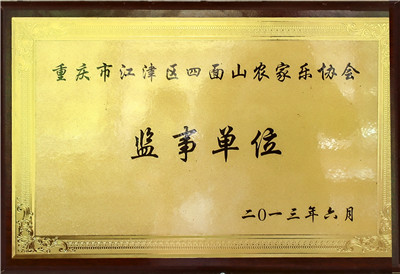 重庆市江津区四面山农家乐协会
监事单位
二〇一三年六月